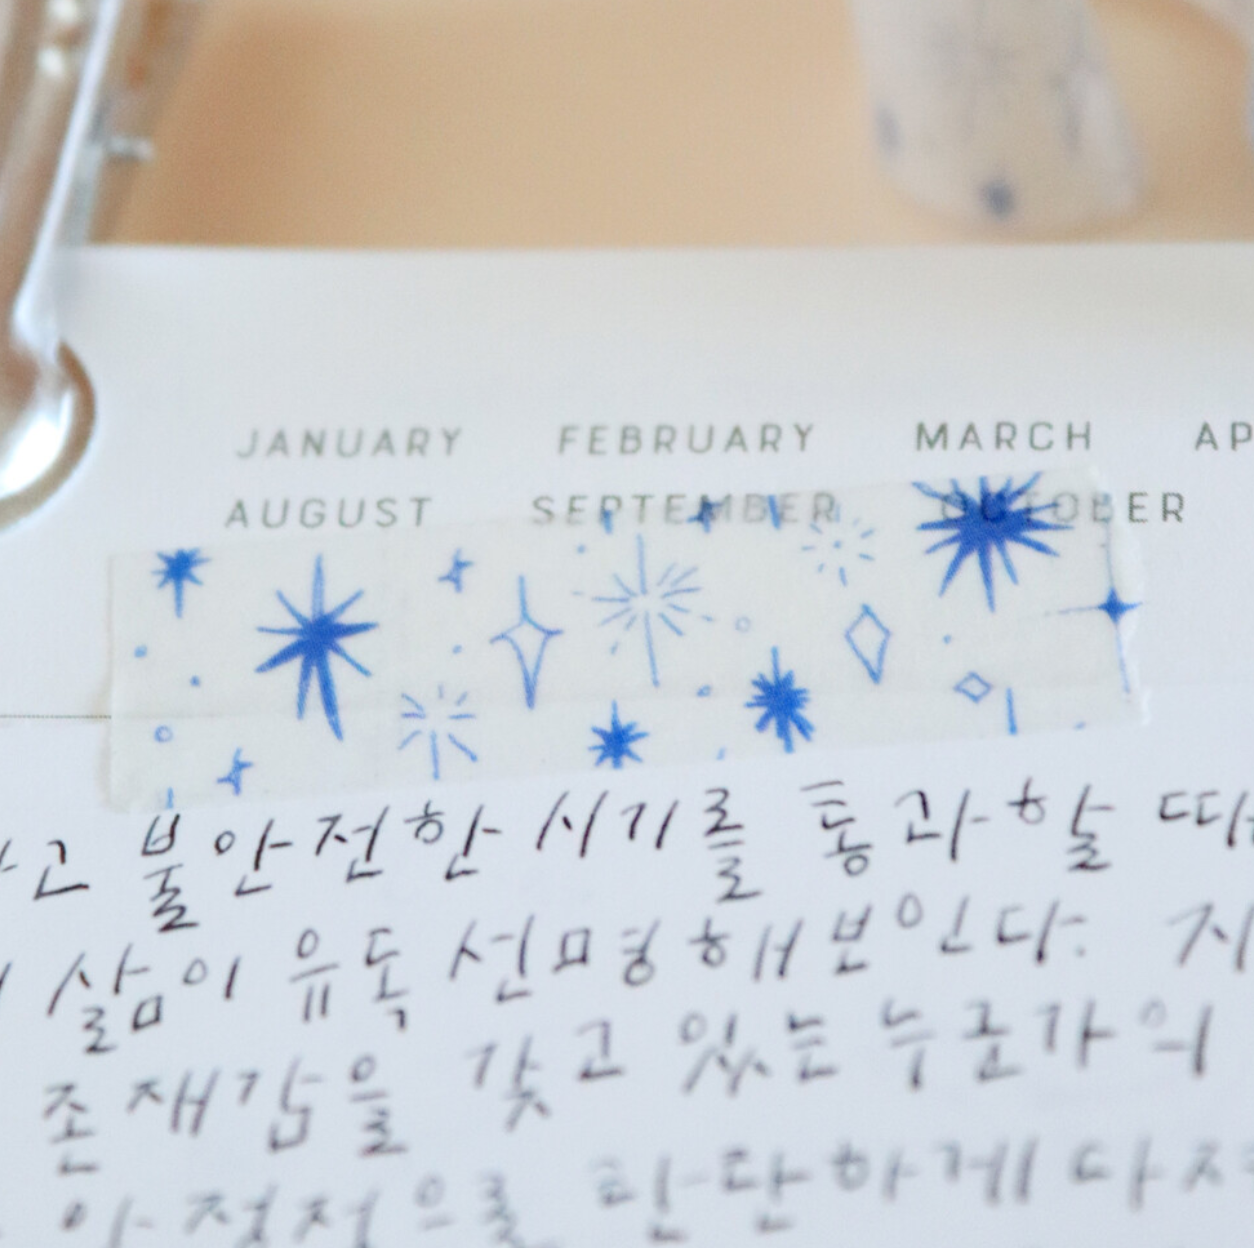 JANUARY FEBRUARY MARCH AP
AUGUST SEPTEMBER OCTOBER
고 불안전한 시기를 통과할 때
삶이 유독 선명해보인다. 지
존재감을 갖고 있는 누군가의
안정적으로 단단하게 다지